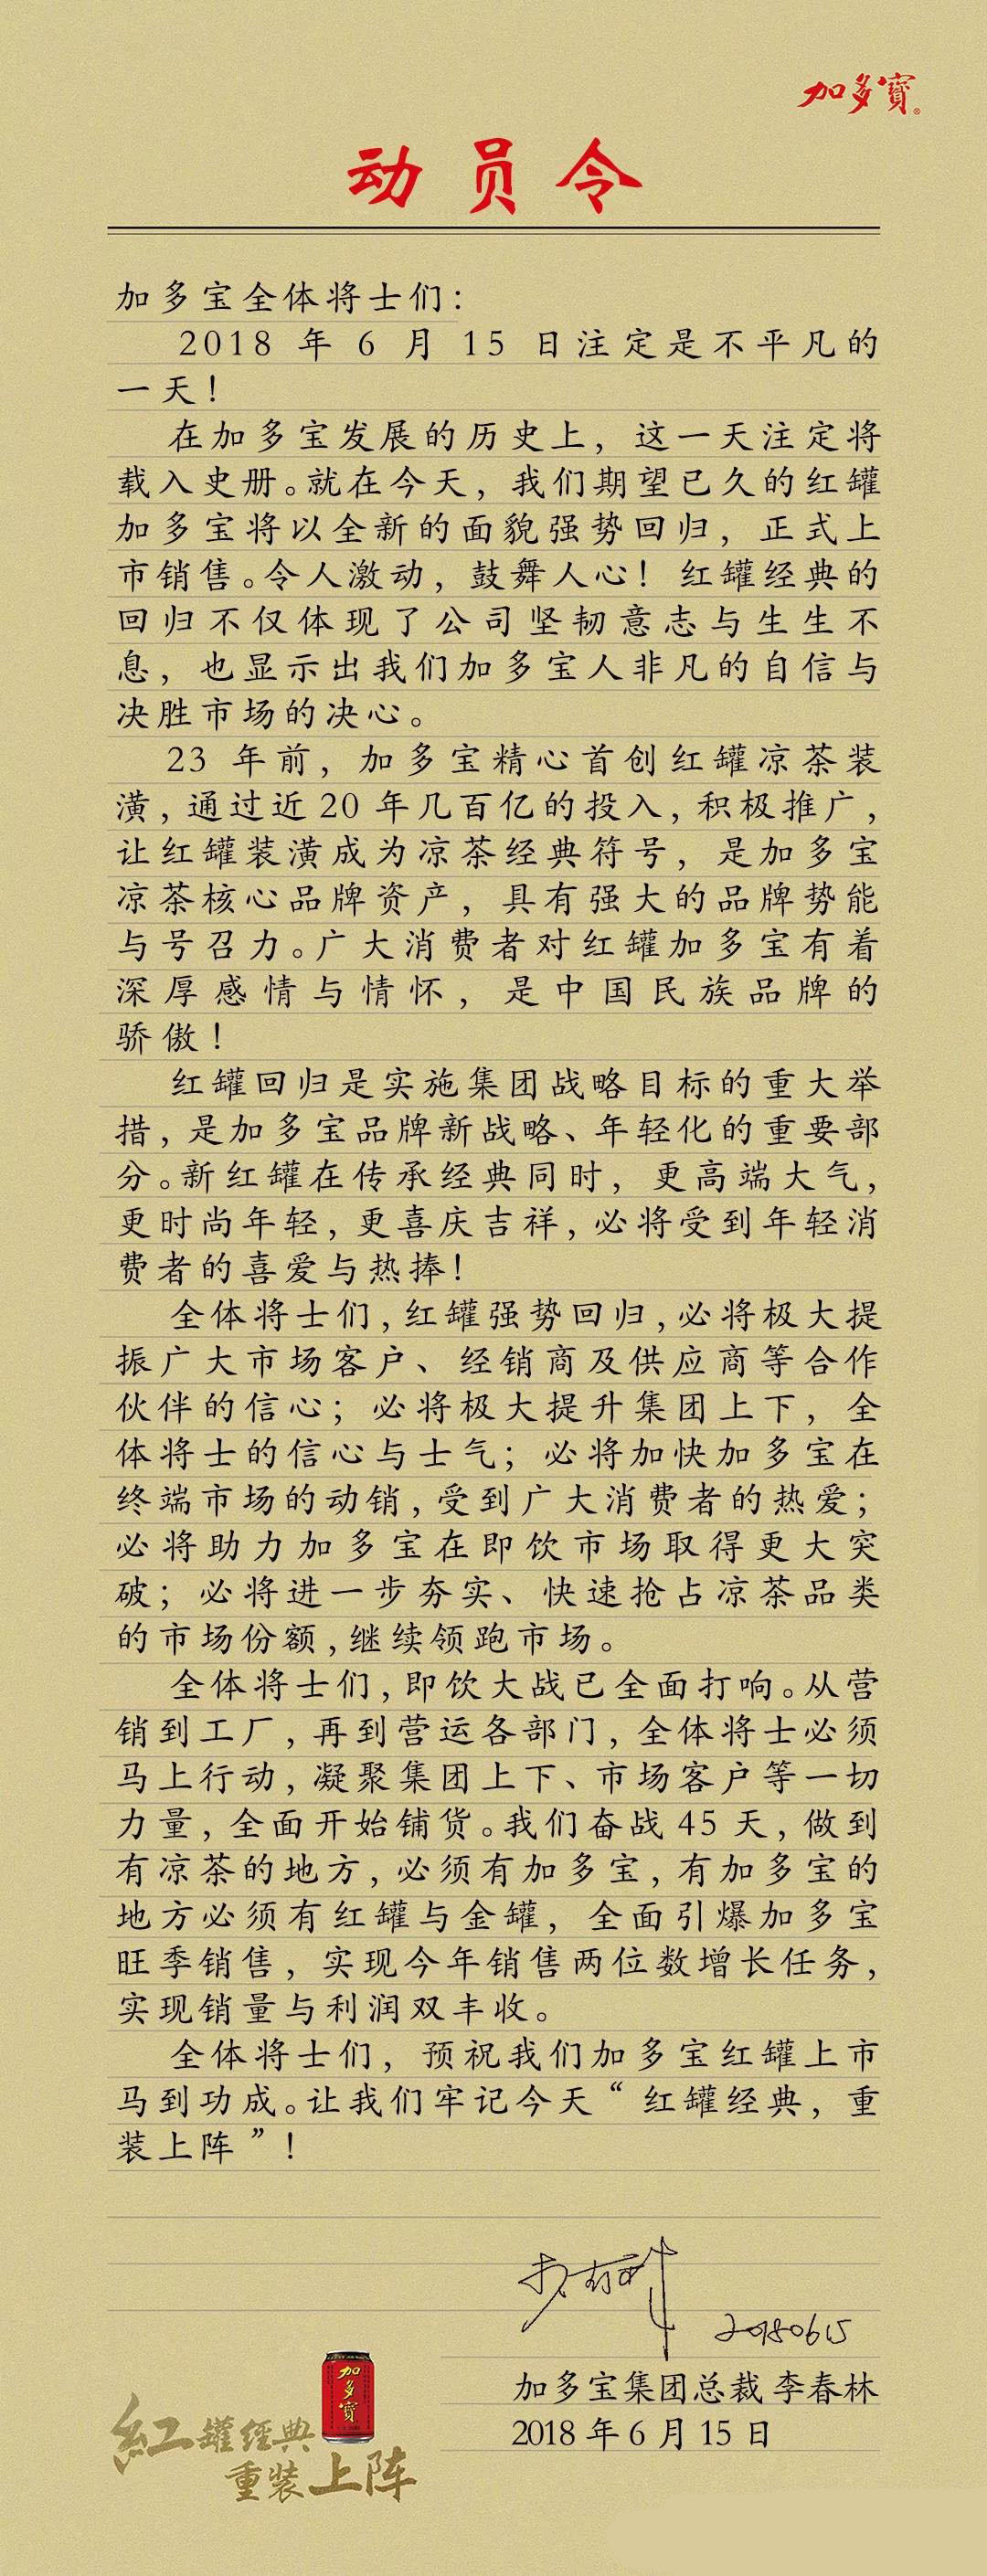 加多寶
动员令
加多宝全体将士们：
2018 年 6 月 15 日注定是不平凡的
一天！
在加多宝发展的历史上，这一天注定将
载入史册。就在今天，我们期望已久的红罐
加多宝将以全新的面貌强势回归，正式上
市销售。令人激动，鼓舞人心！红罐经典的
回归不仅体现了公司坚韧意志与生生不
息，也显示出我们加多宝人非凡的自信与
决胜市场的决心。
23 年前，加多宝精心首创红罐凉茶装
潢，通过近 20 年几百亿的投入，积极推广，
让红罐装潢成为凉茶经典符号，是加多宝
凉茶核心品牌资产，具有强大的品牌势能
与号召力。广大消费者对红罐加多宝有着
深厚感情与情怀，是中国民族品牌的
骄傲！
红罐回归是实施集团战略目标的重大举
措，是加多宝品牌新战略、年轻化的重要部
分。新红罐在传承经典同时，更高端大气，
更时尚年轻，更喜庆吉祥，必将受到年轻消
费者的喜爱与热捧！
全体将士们，红罐强势回归，必将极大提
振广大市场客户、经销商及供应商等合作
伙伴的信心；必将极大提升集团上下，全
体将士的信心与士气；必将加快加多宝在
终端市场的动销，受到广大消费者的热爱；
必将助力加多宝在即饮市场取得更大突
破；必将进一步夯实、快速抢占凉茶品类
的市场份额，继续领跑市场。
全体将士们，即饮大战已全面打响。从营
销到工厂，再到营运各部门，全体将士必须
马上行动，凝聚集团上下、市场客户等一切
力量，全面开始铺货。我们奋战 45 天，做到
有凉茶的地方，必须有加多宝，有加多宝的
地方必须有红罐与金罐，全面引爆加多宝
旺季销售，实现今年销售两位数增长任务，
实现销量与利润双丰收。
全体将士们，预祝我们加多宝红罐上市
马到功成。让我们牢记今天“红罐经典，重
装上阵”！
20180615
加多宝集团总裁 李春林
2018 年 6 月 15 日
加多寶
紅罐經典
重装上阵